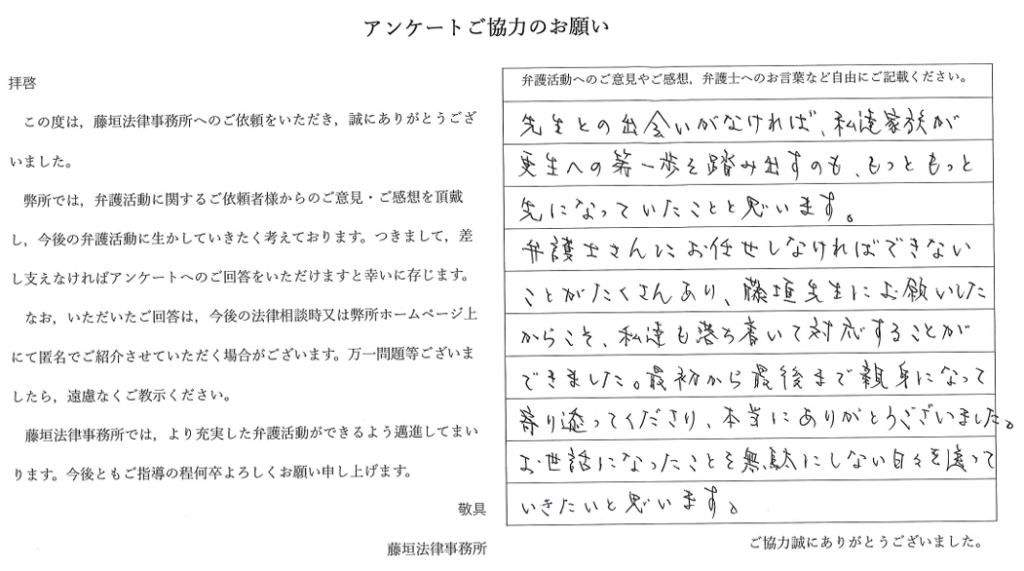 アンケートご協力のお願い
拝啓
この度は，藤垣法律事務所へのご依頼をいただき，誠にありがとうござ
いました。
弊所では，弁護活動に関するご依頼者様からのご意見・ご感想を頂戴
し，今後の弁護活動に生かしていきたく考えております。つきまして，差
し支えなければアンケートへのご回答をいただけますと幸いに存じます。
なお，いただいたご回答は，今後の法律相談時又は弊所ホームページ上
にて匿名でご紹介させていただく場合がございます。万一問題等ございま
したら，遠慮なくご教示ください。
藤垣法律事務所では，より充実した弁護活動ができるよう邁進してまい
ります。今後ともご指導の程何卒よろしくお願い申し上げます。
敬具
藤垣法律事務所
弁護活動へのご意見やご感想，弁護士へのお言葉など自由にご記載ください。
先生との出会いがなければ、私達家族が
更生への第一歩を踏み出すのも、もっともっと
先になっていたことと思います。
弁護士さんにお任せしなければできない
ことがたくさんあり、藤垣先生にお願いした
からこそ、私達も落ち着いて対応することが
できました。最初から最後まで親身になって
寄り添ってくださり、本当にありがとうございました。
お世話になったことを無駄にしない日々を送って
いきたいと思います。
ご協力誠にありがとうございました。